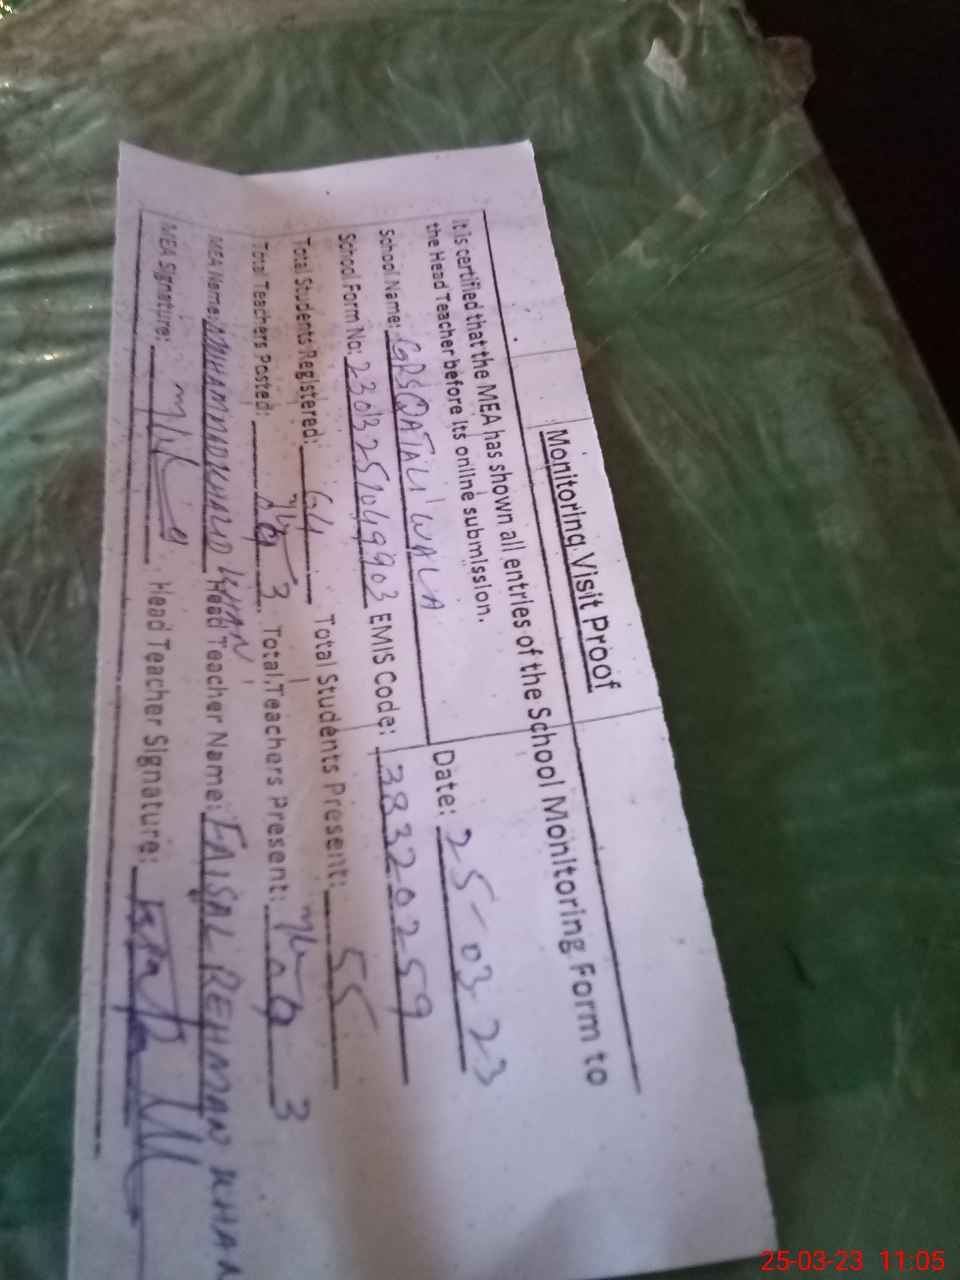 Monitoring Visit Proof
It is certified that the MEA has shown all entries of the School Monitoring Form to
the Head Teacher before its online submission.
Date: 25-03-23
School Name: GPS QATALI WALA
School Form No: 2303251049903 EMIS Code: 38320259
Total Students Registered: 64 Total Students Present: 55
Total Teachers Posted: 3 Total Teachers Present: 3
MEA Name: MUHAMMAD KHALID KHAN Head Teacher Name: FAISAL REHMAN KHAN
MEA Signature: Head Teacher Signature:
25-03-23 11:05